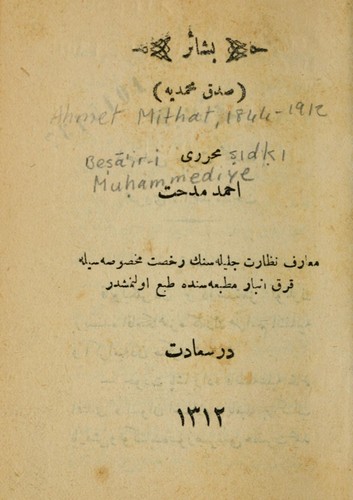 بشائر
(صدق محمديه)
Ahmet Mithat, 1844-1912
محررى
Beşāir-i ṣıdḳı
Muḥammediye
احمد مدحت
معارف نظارت جليله سنك رخصت مخصوصه سيله
قرق انبار مطبعه سنده طبع اولنمشدر
درسعادت
١٣١٢